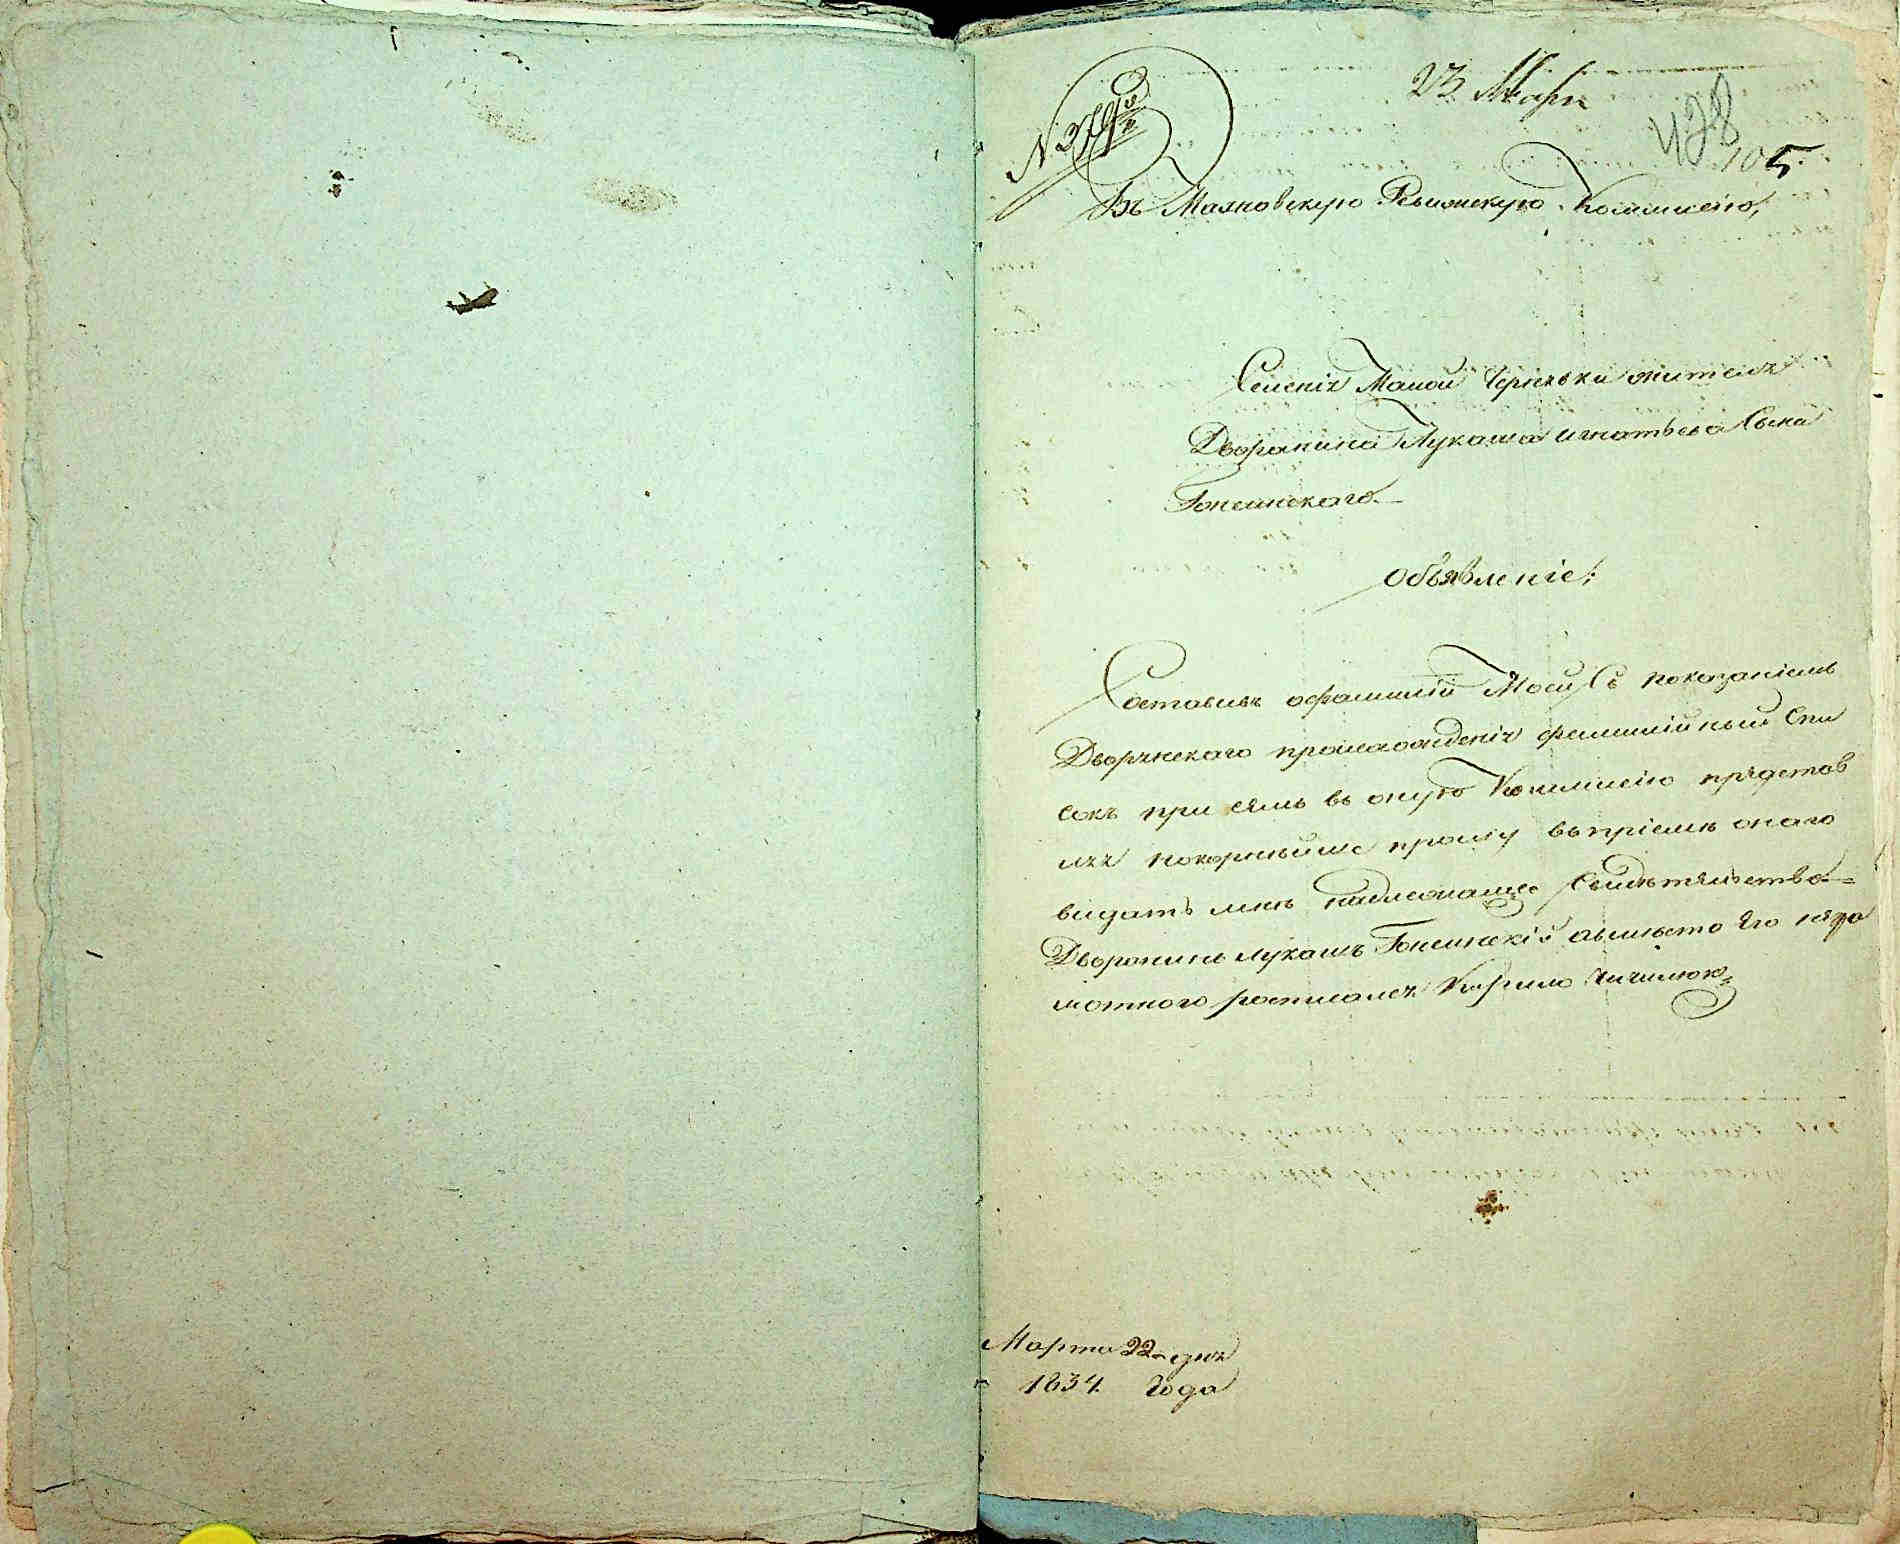 23 Мар
№ 379
428
105
Въ Махновскую Ревизскую Коммисію,
Селенія Малой Чернявки жителя
Дворанина Лукаша игнатьева Сына
Гонсинского
Объявленіе!
Составивъ офамиліи Моей Съ показаніемъ
Дворянскаго происхожденія фамилійный Спи
сокъ при семъ въ оную Коммисію предстов
ляя покорнѣйше прошу впріемѣ онаго
видать мнѣ надлежащее Свидѣтельство =
Дворанинъ Лукашъ Гонсинскій авместо Его негра
мотного росписался Кирило
Марта 22 дня
1834 Года